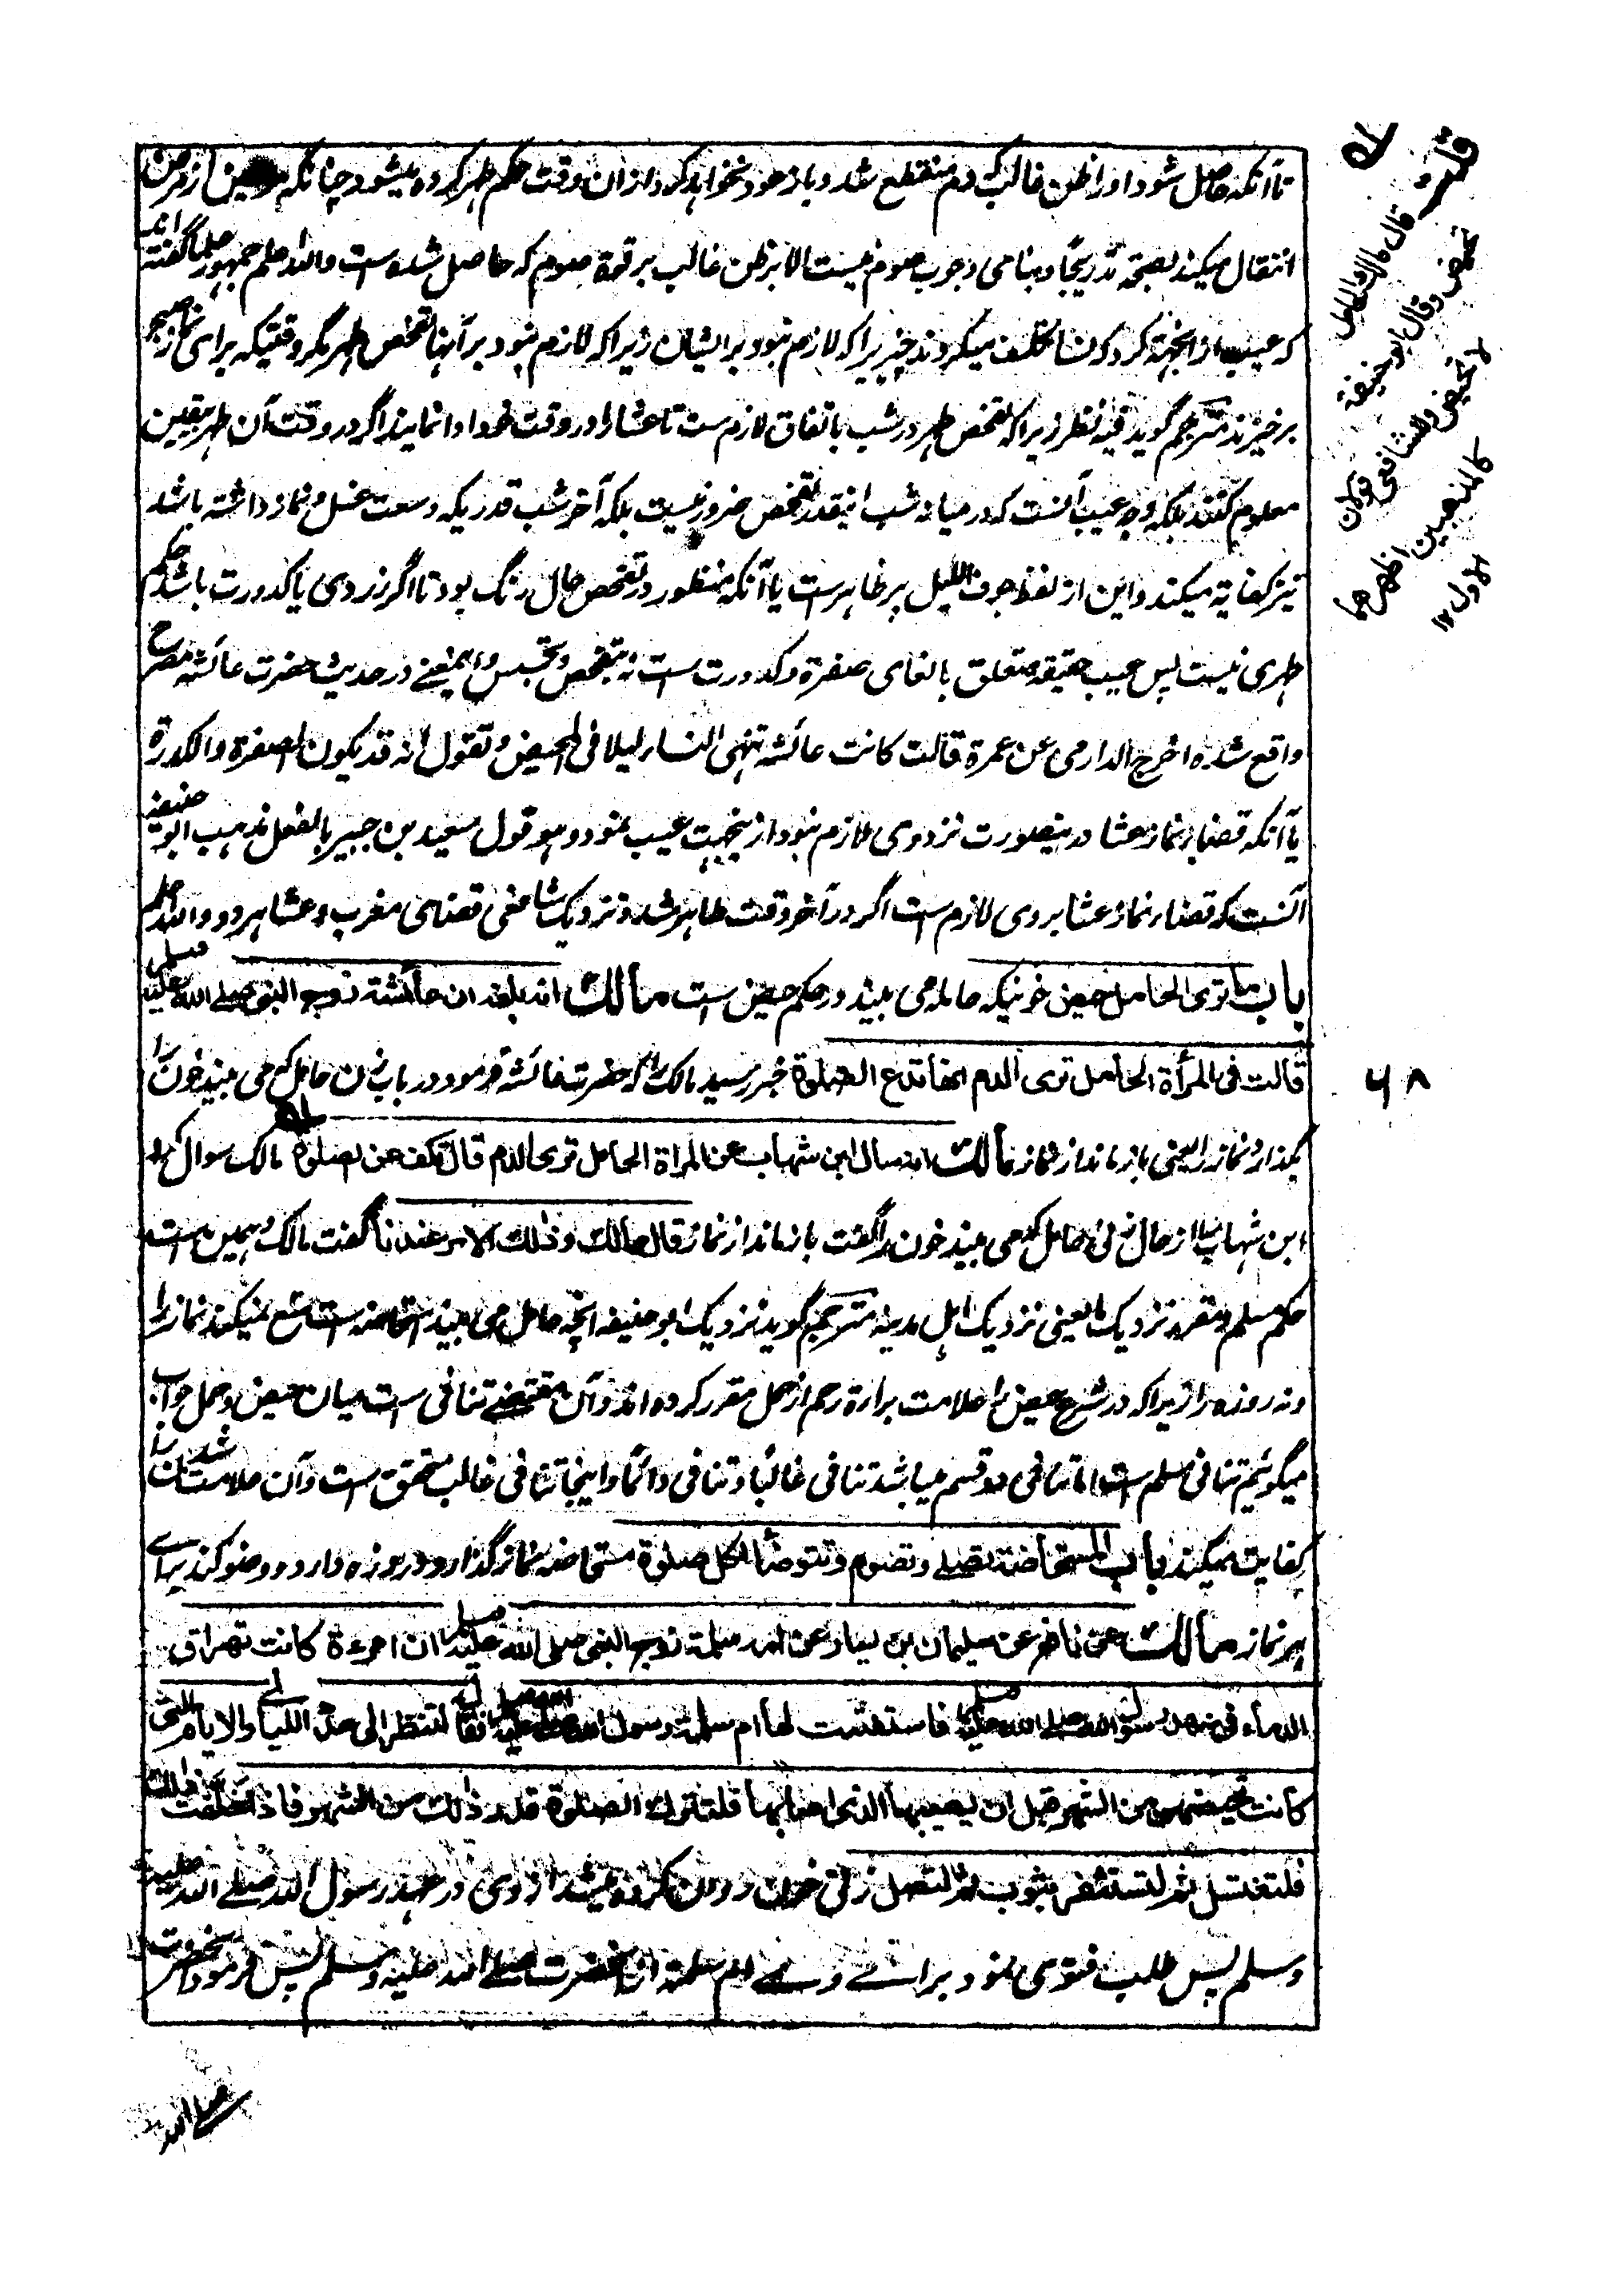 تا آنکه حاصل شود او را ظن غالب که دم منقطع شد و باز عود نخواهد کرد از ان وقت حکم طهر کرده میشود چنانکه مریض از مرض
انتقال میکند بصحة تدریجا و بنا می وجوب صوم نیست الا بر ظن غالب بر قوة صوم که حاصل شده است والله اعلم جمهور علما گفته اند
که عیب از انجهة کرد که زنان تکلف میکردند چیزیرا که لازم نبود بر ایشان زیرا که لازم نبود بر آنها تفحص طهر مگر وقتیکه برای نماز صبح
برخیزند مترجم گوید فیه نظر زیرا که تفحص طهر در شب باتفاق لازم ست تا عشا را در وقت خود ادا نمایند اگر در وقت آن طهر بیقین
معلوم کنند بلکه وجه عیب آنست که در میانه شب اینقدر تفحص ضرور نیست بلکه آخر شب قدریکه وسعت غسل و نماز داشته باشد
نیز کفایة میکند و این از لفظ جوف اللیل پر ظاهر ست یا آنکه منظور در تفحص حال رنگ بود تا اگر زردی یا کدورت باشد حکم
طهری نیست پس عیب حقیقة متعلق بالغای صفرة و کدورت ست نه بتفحص و تجسس و اینمعنے در حدیث حضرت عائشه مصرح
واقع شده اخرج الدارمی عن عمرة قالت کانت عائشه تنهی النساء لیلا فی المحیض و تقول انه قد یکون الصفرة والکدرة
یا آنکه قضاء نماز عشا درینصورت نزد وی لازم نبود ازینجهت عیب نمود و هو قول سعید بن جبیر بالفعل مذهب ابو حنیفه
آنست که قضاء نماز عشا بروی لازم ست اگر در آخر وقت طاهر شد و نزدیک شافعی قضای مغرب و عشا هر دو والله اعلم
باب ما تری الحامل حیض خونیکه حامله می بیند در حکم حیض ست مالك انه بلغه ان عائشة زوج النبی صلی الله علیه وسلم
قالت فی المرأة الحامل تری الدم انها تدع الصلوة خبر رسید مالک را که حضرت عائشه فرمود در باب زن حامل که می بیند خون را
بگذارد نماز را یعنی باز ماند از نماز مالك انه سال ابن شهاب عن المراة الحامل تری الدم قال تکف عن الصلوة مالک سوال کرد
ابن شهاب را از حال زنی حامل که می بیند خون را گفت باز ماند از نماز قال مالك وذلك الامر عندنا گفت مالک و همین ست
حکم مسلم و مقرر نزدیک ما یعنی نزدیک اهل مدینه مترجم گوید نزدیک ابو حنیفه انچه حامل می بیند استحاضه است منع نمیکند نماز را
و نه روزه را زیرا که در شرع حیض را علامت براءة رحم از حمل مقرر کرده اند و آن مقتضے تنافی ست میان حیض و حمل جواب
میگوئیم تنافی مسلم ست اما تنافی دو قسم میباشد تنافی غالبا و تنافی دائما و اینجا تنافی غالب متحقق ست و آن علامت شدن را
کفایت میکند باب المستحاضة تصلے وتصوم وتتوضأ لکل صلوة مستحاضه نماز گذارد و روزه دارد و وضو کند برای
هر نماز مالك عن نافع عن سلیمان بن یسار عن ام سلمة زوج النبی صلی الله علیه وسلم ان امرءة کانت تهراق
الدماء فی عهد رسول الله صلے الله علیه وسلم فاستفتت لها ام سلمة رسول الله صلی الله علیه وسلم فقال لتنظر الی عدد اللیالی والایام التی
کانت تحیضهن من الشهر قبل ان یصیبها الذی اصابها فلتترك الصلوة قدر ذلك من الشهر فاذا خلفت ذلك
فلتغتسل ثم لتستثفر بثوب ثم لتصل زنی خون روان کرده میشد از وی در عهد رسول الله صلے الله علیه
وسلم پس طلب فتوی نمود برائے وے ام سلمة از آنحضرت صلے الله علیه وسلم پس فرمود آنحضرت
صلی الله
قلت
قال مالك الحامل
تحیض وقال ابو حنیفة
لا تحیض وللشافعی قولان
کالمذهبین اظهرهما
الاول ۱۲
۶۸